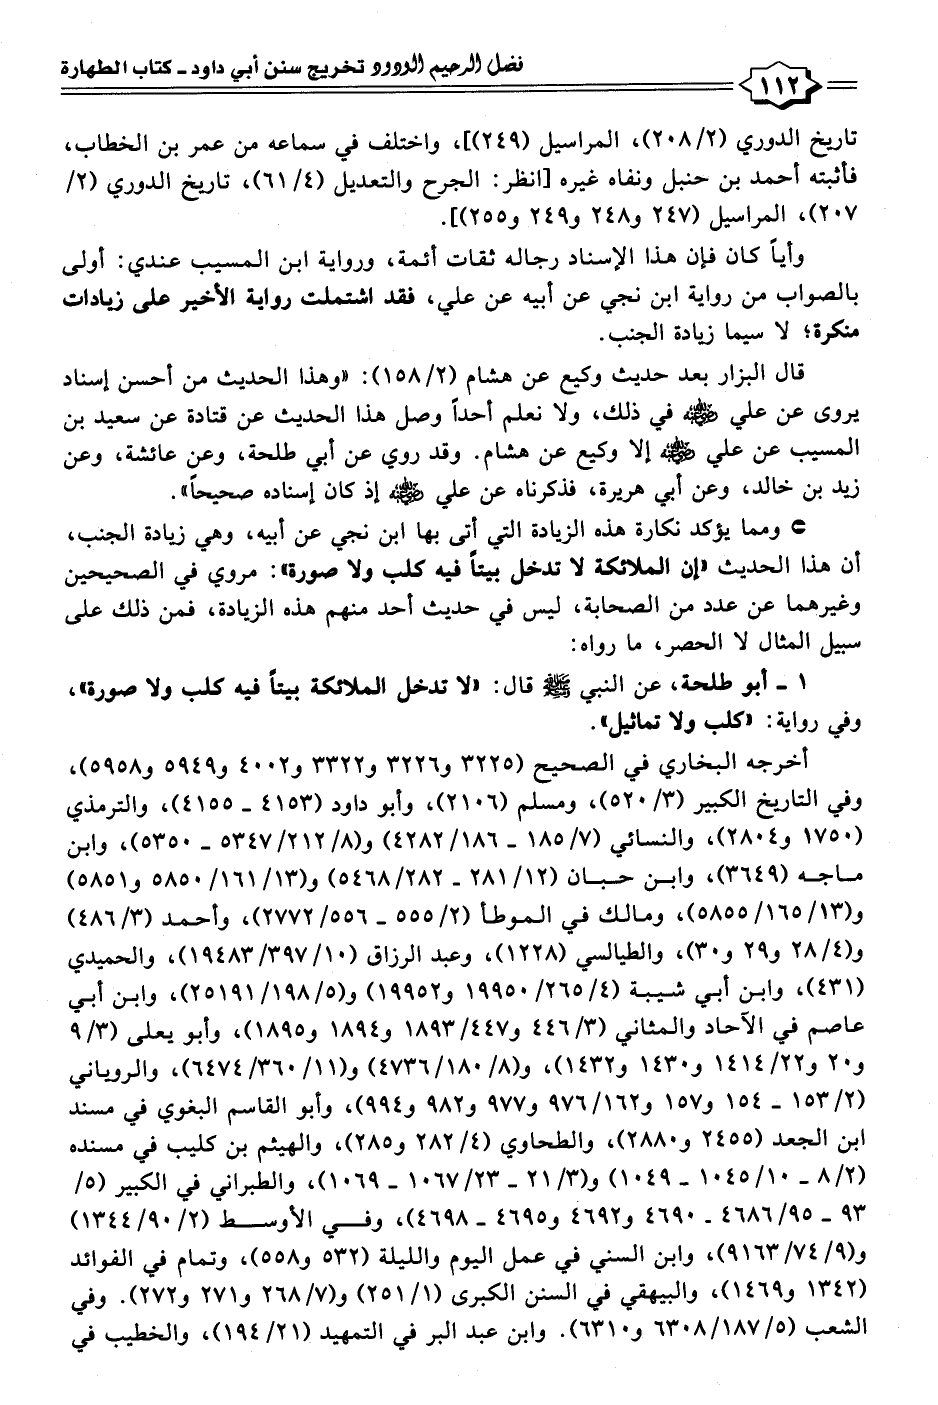 ١١٢
فضل الرحيم الودود تخريج سنن أبي داود ـ كتاب الطهارة
تاريخ الدوري (٢٠٨/٢)، المراسيل (٢٤٩)]، واختلف في سماعه من عمر بن الخطاب،
فأثبته أحمد بن حنبل ونفاه غيره [انظر: الجرح والتعديل (٦١/٤)، تاريخ الدوري (٢/
٢٠٧)، المراسيل (٢٤٧ و٢٤٨ و٢٤٩ و٢٥٥)].
وأياً كان فإن هذا الإسناد رجاله ثقات أئمة، ورواية ابن المسيب عندي: أولى
بالصواب من رواية ابن نجي عن أبيه عن علي، فقد اشتملت رواية الأخير على زيادات
منكرة؛ لا سيما زيادة الجنب.
قال البزار بعد حديث وكيع عن هشام (١٥٨/٢): «وهذا الحديث من أحسن إسناد
يروى عن علي رضي الله عنه في ذلك، ولا نعلم أحداً وصل هذا الحديث عن قتادة عن سعيد بن
المسيب عن علي رضي الله عنه إلا وكيع عن هشام. وقد روي عن أبي طلحة، وعن عائشة، وعن
زيد بن خالد، وعن أبي هريرة، فذكرناه عن علي رضي الله عنه إذ كان إسناده صحيحاً».
ومما يؤكد نكارة هذه الزيادة التي أتى بها ابن نجي عن أبيه، وهي زيادة الجنب،
أن هذا الحديث «إن الملائكة لا تدخل بيتاً فيه كلب ولا صورة»: مروي في الصحيحين
وغيرهما عن عدد من الصحابة، ليس في حديث أحد منهم هذه الزيادة، فمن ذلك على
سبيل المثال لا الحصر، ما رواه:
١ ـ أبو طلحة، عن النبي ﷺ قال: «لا تدخل الملائكة بيتاً فيه كلب ولا صورة»،
وفي رواية: «كلب ولا تماثيل».
أخرجه البخاري في الصحيح (٣٢٢٥ و٣٢٢٦ و٣٣٢٢ و٤٠٠٢ و٥٩٤٩ و٥٩٥٨)،
وفي التاريخ الكبير (٥٢٠/٣)، ومسلم (٢١٠٦)، وأبو داود (٤١٥٣ ـ ٤١٥٥)، والترمذي
(١٧٥٠ و٢٨٠٤)، والنسائي (١٨٥/٧ ـ ٤٢٨٢/١٨٦) و(٥٣٤٧/٢١٢/٨ ـ ٥٣٥٠)، وابن
ماجه (٣٦٤٩)، وابن حبان (٢٨١/١٢ ـ ٥٤٦٨/٢٨٢) و(٥٨٥٠/١٦١/١٣ و٥٨٥١)
و(٥٨٥٥/١٦٥/١٣)، ومالك في الموطأ (٥٥٥/٢ ـ ٢٧٧٢/٥٥٦)، وأحمد (٤٨٦/٣)
و(٢٨/٤ و٢٩ و٣٠)، والطيالسي (١٢٢٨)، وعبد الرزاق (١٩٤٨٣/٣٩٧/١٠)، والحميدي
(٤٣١)، وابن أبي شيبة (١٩٩٥٠/٢٦٥/٤ و١٩٩٥٢) و(٢٥١٩١/١٩٨/٥)، وابن أبي
عاصم في الآحاد والمثاني (٤٤٦/٣ و١٨٩٣/٤٤٧ و١٨٩٤ و١٨٩٥)، وأبو يعلى (٩/٣
و٢٠ و١٤١٤/٢٢ و١٤٣٠ و١٤٣٢)، و(٤٧٣٦/١٨٠/٨) و(٦٤٧٤/٣٦٠/١١)، والروياني
(١٥٣/٢ ـ ١٥٤ و١٥٧ و٩٧٦/١٦٢ و٩٧٧ و٩٨٢ و٩٩٤)، وأبو القاسم البغوي في مسند
ابن الجعد (٢٤٥٥ و٢٨٨٠)، والطحاوي (٢٨٢/٤ و٢٨٥)، والهيثم بن كليب في مسنده
(٨/٢ ـ ١٠٤٥/١٠ ـ ١٠٤٩) و(٢١/٣ ـ ١٠٦٧/٢٣ ـ ١٠٦٩)، والطبراني في الكبير (٥/
٩٣ ـ ٤٦٨٦/٩٥ ـ ٤٦٩٠ و٤٦٩٢ و٤٦٩٥ ـ ٤٦٩٨)، وفي الأوسط (١٣٤٤/٩٠/٢)
و(٩١٦٣/٧٤/٩)، وابن السني في عمل اليوم والليلة (٥٣٢ و٥٥٨)، وتمام في الفوائد
(١٣٤٢ و١٤٦٩)، والبيهقي في السنن الكبرى (٢٥١/١) و(٢٦٨/٧ و٢٧١ و٢٧٢). وفي
الشعب (٦٣٠٨/١٨٧/٥ و٦٣١٠). وابن عبد البر في التمهيد (١٩٤/٢١)، والخطيب في